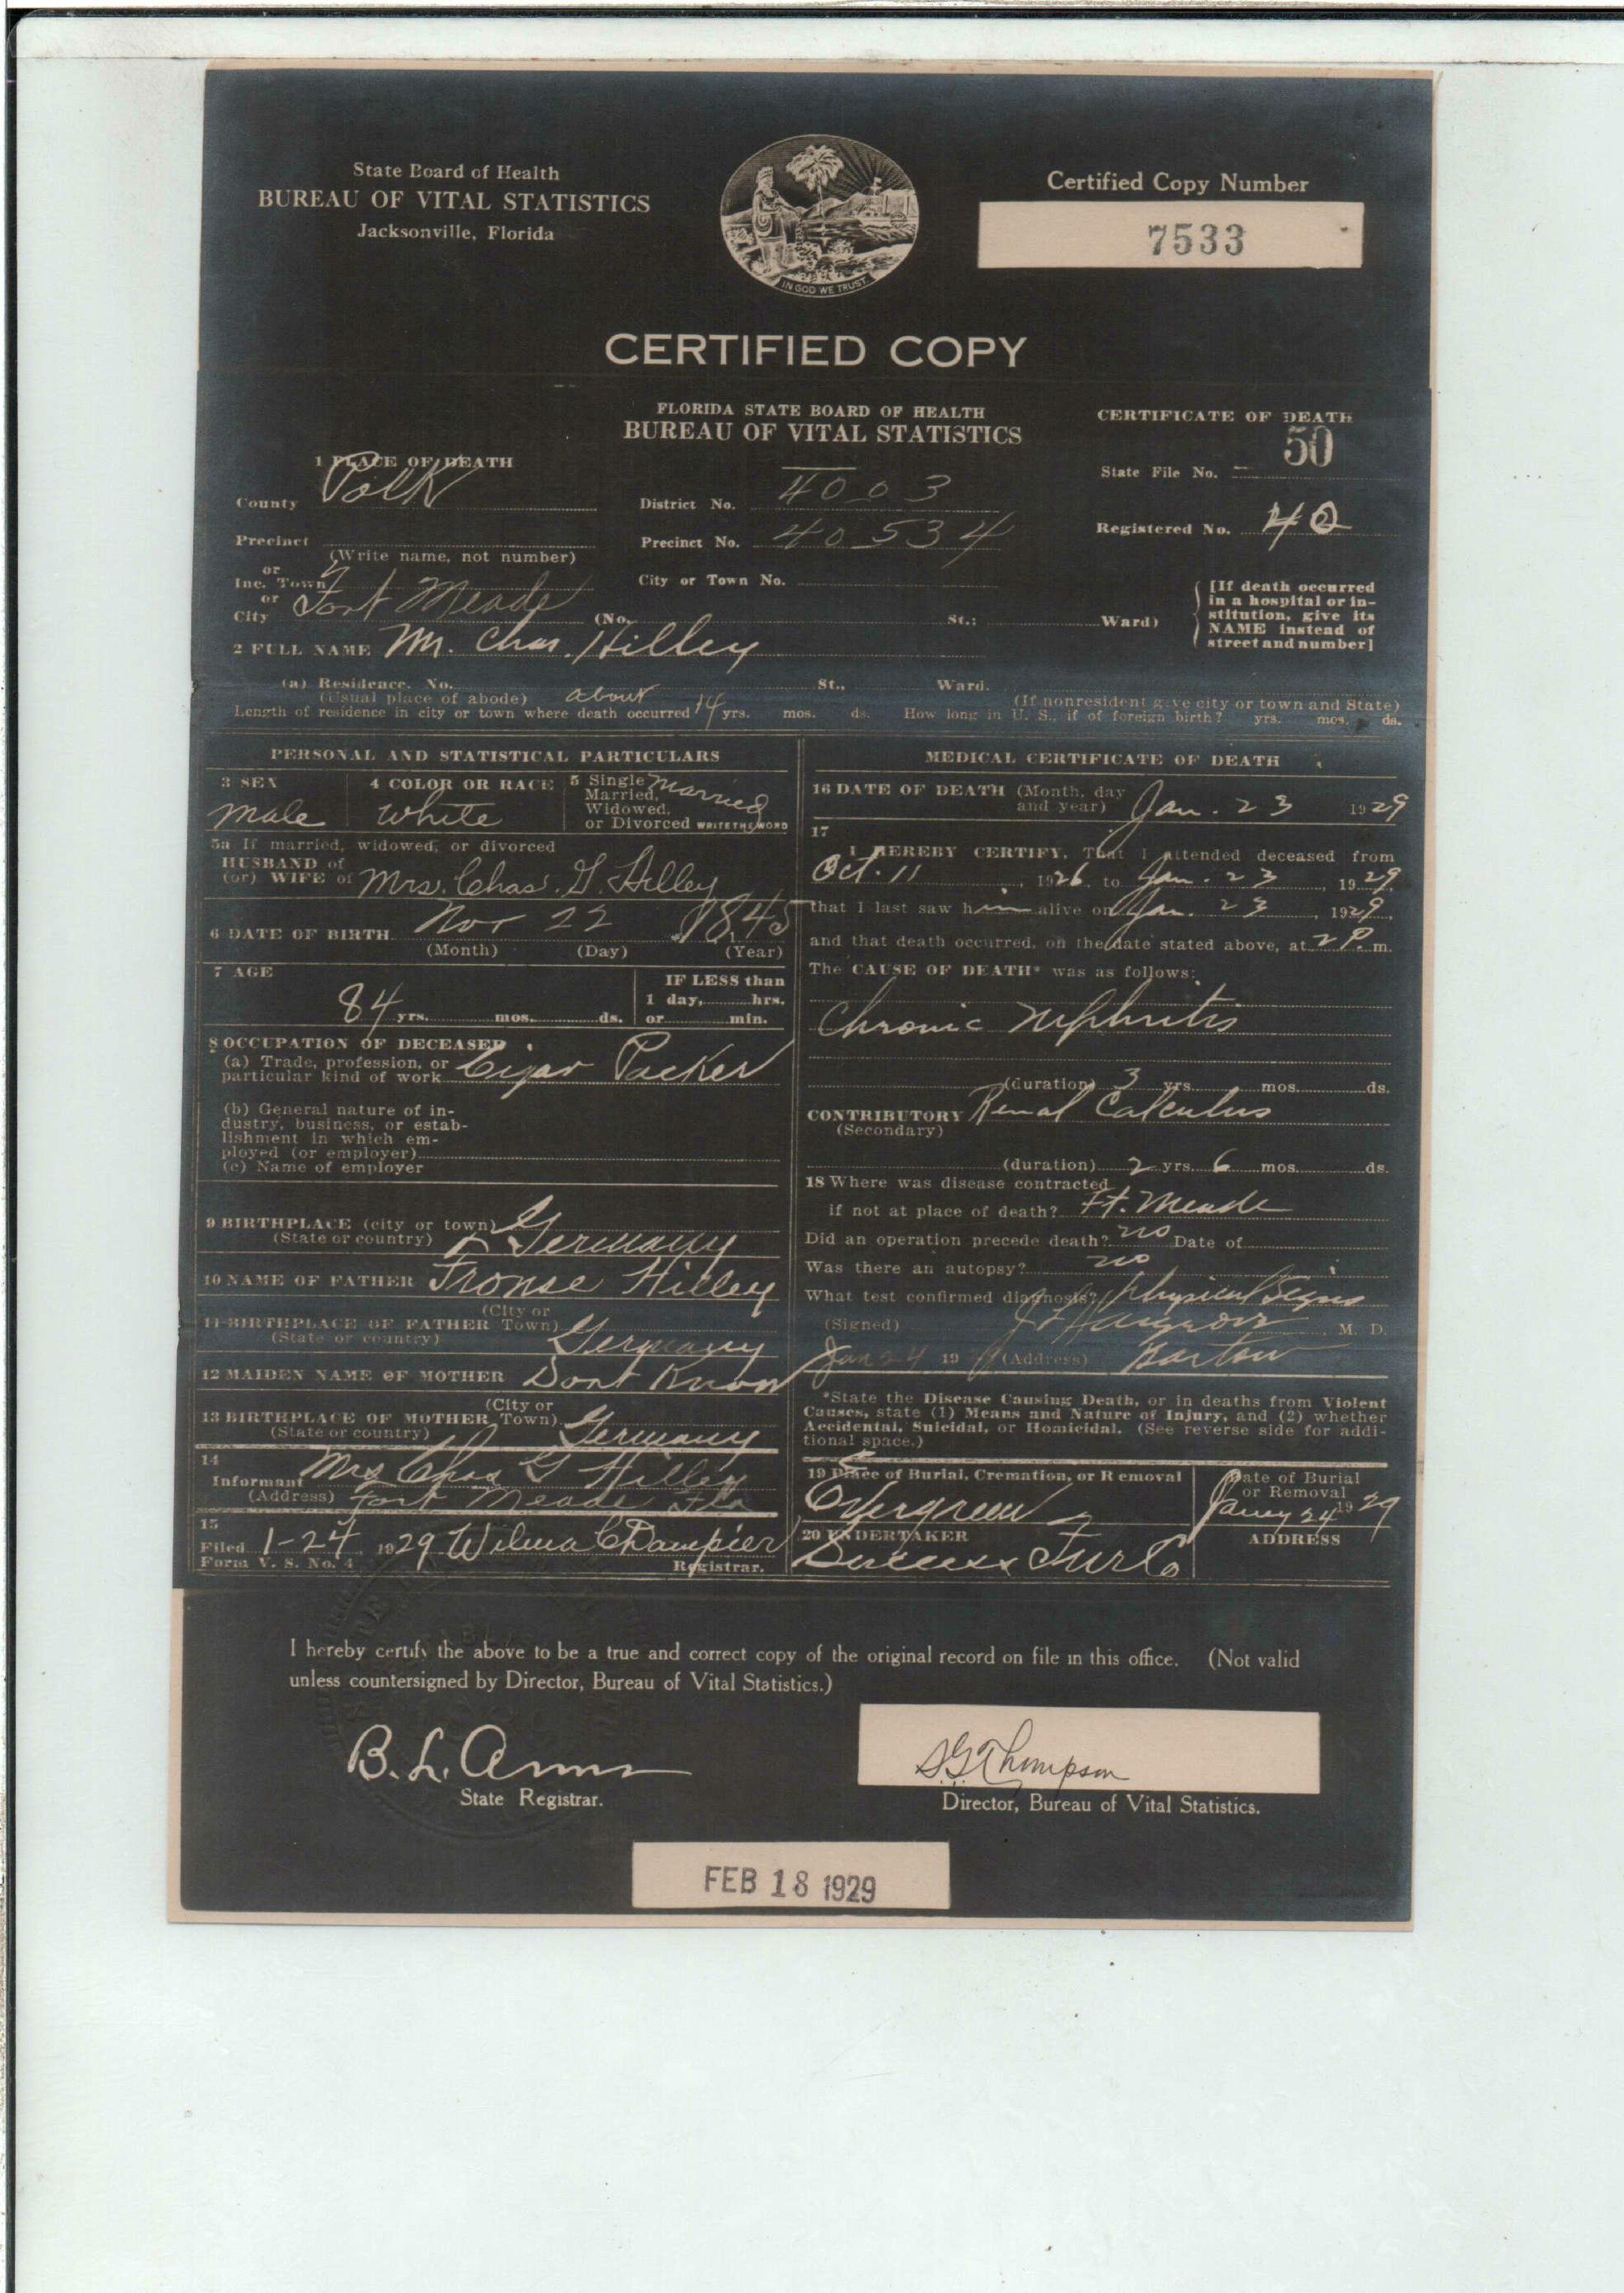 State Board of Health
BUREAU OF VITAL STATISTICS
Jacksonville, Florida
IN GOD WE TRUST
Certified Copy Number
7533
CERTIFIED COPY
FLORIDA STATE BOARD OF HEALTH
BUREAU OF VITAL STATISTICS
CERTIFICATE OF DEATH
50
State File No.
1 PLACE OF DEATH
County Polk
District No. 4003
Registered No. 40
Precinct
(Write name, not number)
Precinct No. 40534
or
Inc. Town
or
City Fort Meade (No. St.; Ward)
City or Town No.
[If death occurred
in a hospital or in-
stitution, give its
NAME instead of
street and number]
2 FULL NAME M. Chas. Hilley
(a) Residence. No. St., Ward.
(Usual place of abode) (If nonresident give city or town and State)
Length of residence in city or town where death occurred about 14 yrs. mos. ds. How long in U. S., if of foreign birth? yrs. mos. ds.
PERSONAL AND STATISTICAL PARTICULARS
3 SEX
male
4 COLOR OR RACE
White
5 Single
Married,
Widowed,
or Divorced WRITE THE WORD
Married
5a If married, widowed, or divorced
HUSBAND of
(or) WIFE of Mrs. Chas. G. Hilley
6 DATE OF BIRTH Nov 22 1845
(Month) (Day) (Year)
7 AGE
84 yrs. mos. ds.
IF LESS than
1 day, hrs.
or min.
8 OCCUPATION OF DECEASED
(a) Trade, profession, or
particular kind of work Cigar Packer
(b) General nature of in-
dustry, business, or estab-
lishment in which em-
ployed (or employer)
(c) Name of employer
9 BIRTHPLACE (city or town)
(State or country) Germany
10 NAME OF FATHER Fronse Hilley
11 BIRTHPLACE OF FATHER (City or Town)
(State or country) Germany
12 MAIDEN NAME OF MOTHER Dont Know
13 BIRTHPLACE OF MOTHER (City or Town)
(State or country) Germany
14
Informant Mrs Chas G Hilley
(Address) Fort Meade Fla
15
Filed 1-24 1929 Wilma C Dampier
Form V. S. No. 4 Registrar.
MEDICAL CERTIFICATE OF DEATH
16 DATE OF DEATH (Month, day
and year) Jan. 23 1929
17
I HEREBY CERTIFY, That I attended deceased from
Oct. 11, 1926, to Jan. 23, 1929,
that I last saw him alive on Jan. 23, 1929,
and that death occurred, on the date stated above, at 2 P. m.
The CAUSE OF DEATH* was as follows:
Chronic Nephritis
(duration) 3 yrs. mos. ds.
CONTRIBUTORY Renal Calculus
(Secondary)
(duration) 2 yrs. 6 mos. ds.
18 Where was disease contracted
if not at place of death? Ft. Meade
Did an operation precede death? no Date of
Was there an autopsy? no
What test confirmed diagnosis? Physical Signs
(Signed) M. D.
Jan 24 19 (Address) Bartow
*State the Disease Causing Death, or in deaths from Violent
Causes, state (1) Means and Nature of Injury, and (2) whether
Accidental, Suicidal, or Homicidal. (See reverse side for addi-
tional space.)
19 Place of Burial, Cremation, or Removal
Evergreen
Date of Burial
or Removal
Jany 24 1929
20 UNDERTAKER
Fur Co
ADDRESS
I hereby certify the above to be a true and correct copy of the original record on file in this office. (Not valid
unless countersigned by Director, Bureau of Vital Statistics.)
B. L. Arms
State Registrar.
S G Thompson
Director, Bureau of Vital Statistics.
FEB 18 1929